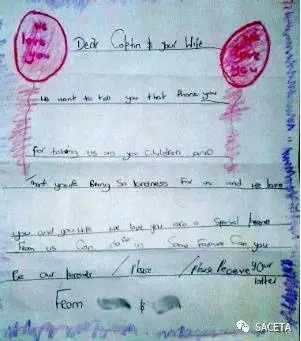 We
love
you
Dear Captin & your Wife
you
We want to tell you that thank you
For taking us as you children and
that you're Being so kindness For us and we love
you and you wife we love you are a special
From us Can do us Some Favour Can you
Be our parents /please /please Receive your
latter
From &
SACETA